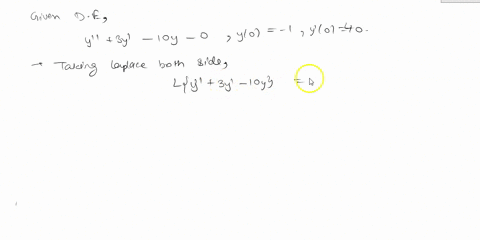 Given D.E,
y'' + 3y' - 10y - 0 , y(0) = -1 , y'(0) = 40.
→ Taking laplace both side,
L{y'' + 3y' - 10y} = L